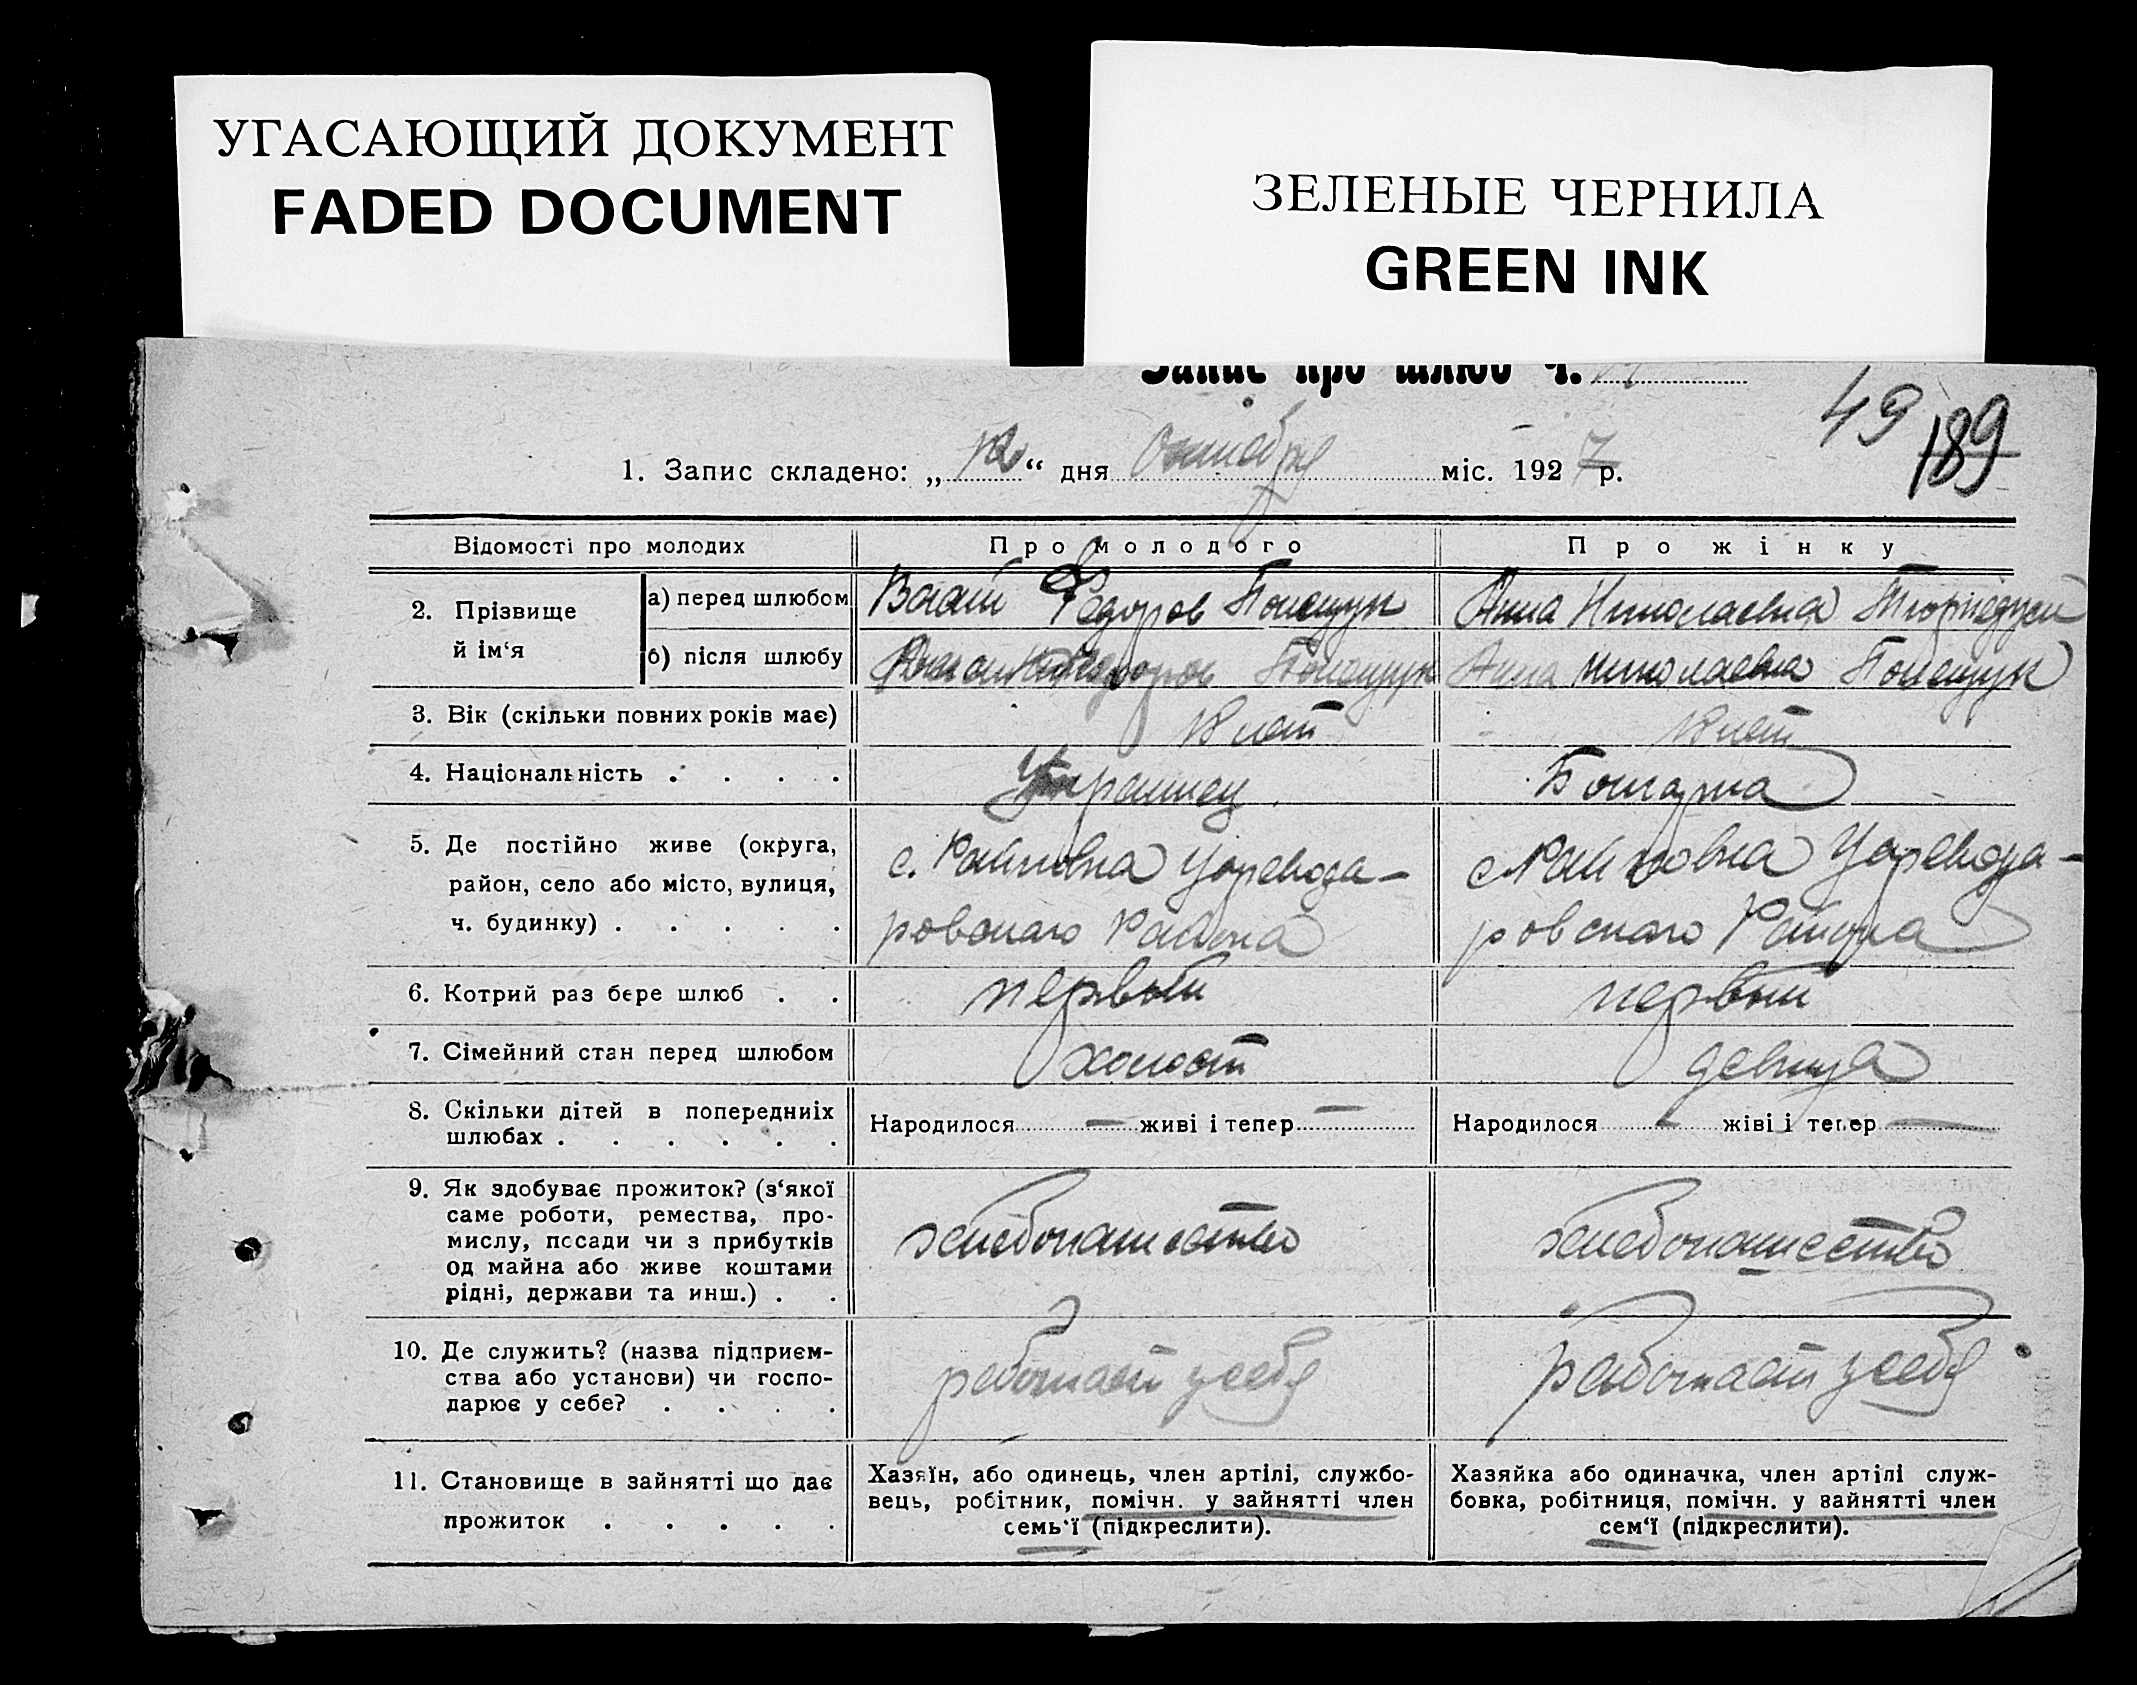 УГАСАЮЩИЙ ДОКУМЕНТ
FADED DOCUMENT
ЗЕЛЕНЫЕ ЧЕРНИЛА
GREEN INK
Запис про шлюб Ч.
49
189
1. Запис складено: „12“ дня Октября міс. 1927 р.
Відомості про молодих
Про молодого
Про жінку
2. Прізвище й ім‘я
а) перед шлюбом
Федоров Полещук
Анна Николаевна
б) після шлюбу
Федоров Полещук
Анна Николаевна Полещук
3. Вік (скільки повних років має)
18 лет
18 лет
4. Національність . . . .
Украинец
Болгарка
5. Де постійно живе (округа,
район, село або місто, вулиця,
ч. будинку) . . . . .
с. Райновка Царевода-
ровского Района
с Райновка Царевода-
ровского Района
6. Котрий раз бере шлюб . .
первый
первый
7. Сімейний стан перед шлюбом
холост
девица
8. Скільки дітей в попередниіх
шлюбах . . . . . .
Народилося — живі і тепер —
Народилося — жіві і тепер —
9. Як здобуває прожиток? (з‘якої
саме роботи, ремества, про-
мислу, посади чи з прибутків
од майна або живе коштами
рідні, держави та инш.) . .
хлебопашество
хлебопашество
10. Де служить? (назва підприєм-
ства або установи) чи госпо-
дарює у себе? . . . .
работает у себя
работает у себя
11. Становище в зайнятті що дає
прожиток . . . . .
Хазяїн, або одинець, член артілі, службо-
вець, робітник, помічн. у зайнятті член
семь‘ї (підкреслити).
Хазяйка або одиначка, член артілі служ-
бовка, робітниця, помічн. у зайнятті член
сем‘ї (підкреслити).